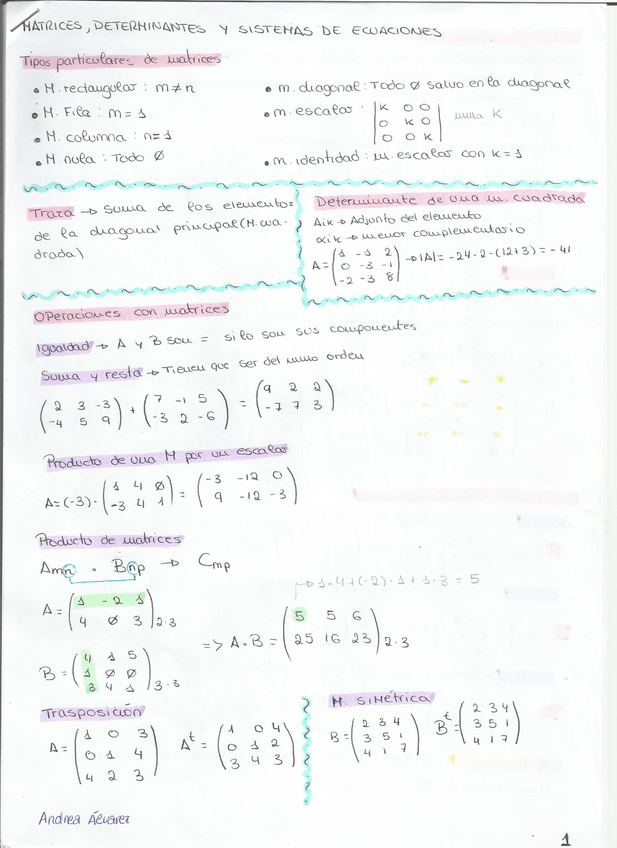 MATRICES, DETERMINANTES Y SISTEMAS DE ECUACIONES
Tipos particulares de matrices
• M. rectangular : m ≠ n
• M. Fila : m = 1
• M. columna : n = 1
• M. nula : Todo Ø
• m. diagonal : Todo Ø salvo en la diagonal
• m. escalar :
K 0 0
0 K 0
0 0 K
• m. identidad : m. escalar con k = 1
Traza → Suma de los elementos
de la diagonal principal (M. cua-
drada)
Determinante de una m. cuadrada
Aik → Adjunto del elemento
αik → menor complementario
A = ( 1 -1 2
0 -3 -1
-2 -3 8 ) → |A| = -24 -2 -(12+3) = -41
Operaciones con matrices
Igualdad → A y B son = si lo son sus componentes
Suma y resta → Tienen que ser del mismo orden
( 2 3 -3
-4 5 9 ) + ( 7 -1 5
-3 2 -6 ) = ( 9 2 2
-7 7 3 )
Producto de una M por un escalar
A = (-3) · ( 1 4 Ø
-3 4 1 ) = ( -3 -12 0
9 -12 -3 )
Producto de matrices
Amn · Bnp → Cmp
→ 1·4+(-2)·1+1·3 = 5
A = ( 1 -2 1
4 Ø 3 ) 2·3
B = ( 4 1 5
1 Ø Ø
3 4 1 ) 3·3
=> A·B = ( 5 5 6
25 16 23 ) 2·3
Trasposición
A = ( 1 0 3
0 1 4
4 2 3 )
At = ( 1 0 4
0 1 2
3 4 3 )
M. SIMÉTRICA
B = ( 2 3 4
3 5 1
4 1 7 )
Bt = ( 2 3 4
3 5 1
4 1 7 )
Andrea Álvarez
1